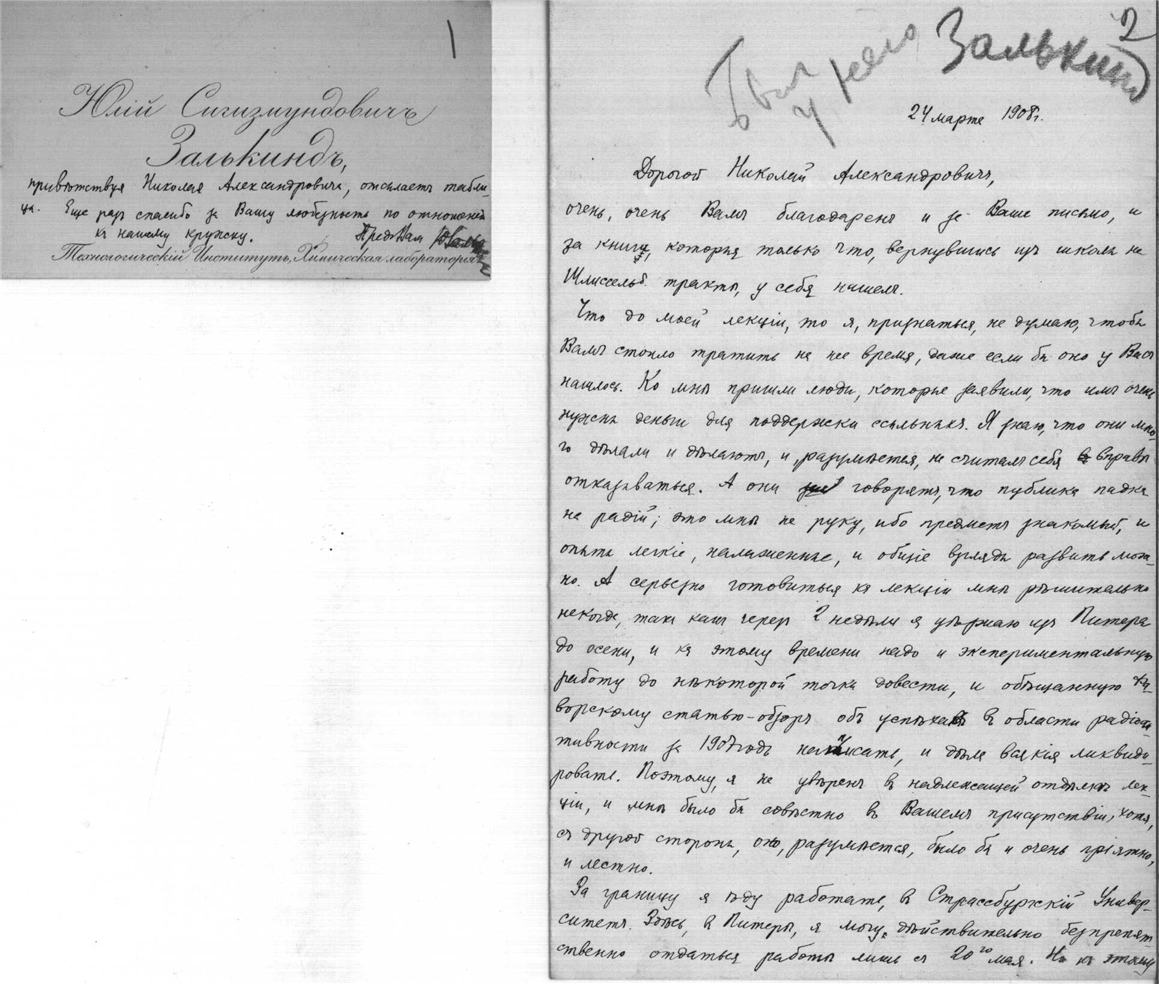 1
Юлій Сигизмундовичъ
Залькиндъ,
привѣтствуя Николая Александровича, отсылаетъ табли
цы. Еще разъ спасибо за Вашу любезность по отношенію
къ нашему кружку.
Технологическій Институтъ, Химическая лабораторія
2
Былъ у меня Залькинд
24 марта 1908 г.
Дорогой Николай Александровичъ,
очень, очень Вамъ благодаренъ и за Ваше письмо, и
за книгу, которую только что, вернувшись изъ школы на
Шлиссельб. тракту, у себя нашелъ.
Что до моей лекціи, то я, признаться, не думаю, чтобы
Вамъ стоило тратить на нее время, даже если бы оно у Васъ
нашлось. Ко мнѣ пришли люди, которые заявили, что имъ очень
нужны деньги для поддержки ссыльныхъ. Я знаю, что они мно-
го дѣлали и дѣлаютъ, и, разумѣется, не считалъ себя вправѣ
отказываться. А они говорятъ, что публика падка
на радій; это мнѣ на руку, ибо предметъ знакомый, и
опыты легкіе, налаженные, и общіе взгляды развить мож-
но. А серьезно готовиться къ лекціи мнѣ рѣшительно
некогда, такъ какъ черезъ 2 недѣли я уѣзжаю изъ Питера
до осени, и къ этому времени надо и экспериментальную
работу до нѣкоторой точки довести, и обѣщанную
ворскому статью-обзоръ объ успѣхахъ въ области радіоак
тивности за 1907 годъ написать, и дѣла всякія ликвиди-
ровать. Поэтому, я не увѣренъ въ надлежащей отдѣлкѣ лек-
ціи, и мнѣ было бы совѣстно въ Вашемъ присутствіи, хотя,
съ другой стороны, оно, разумѣется, было бы и очень пріятно,
и лестно.
За границу я ѣду работать, въ Страссбургскій Универ-
ситетъ. Здѣсь, въ Питерѣ, я могу дѣйствительно безпрепят
ственно отдаться работѣ лишь съ 20го мая. Но къ этому